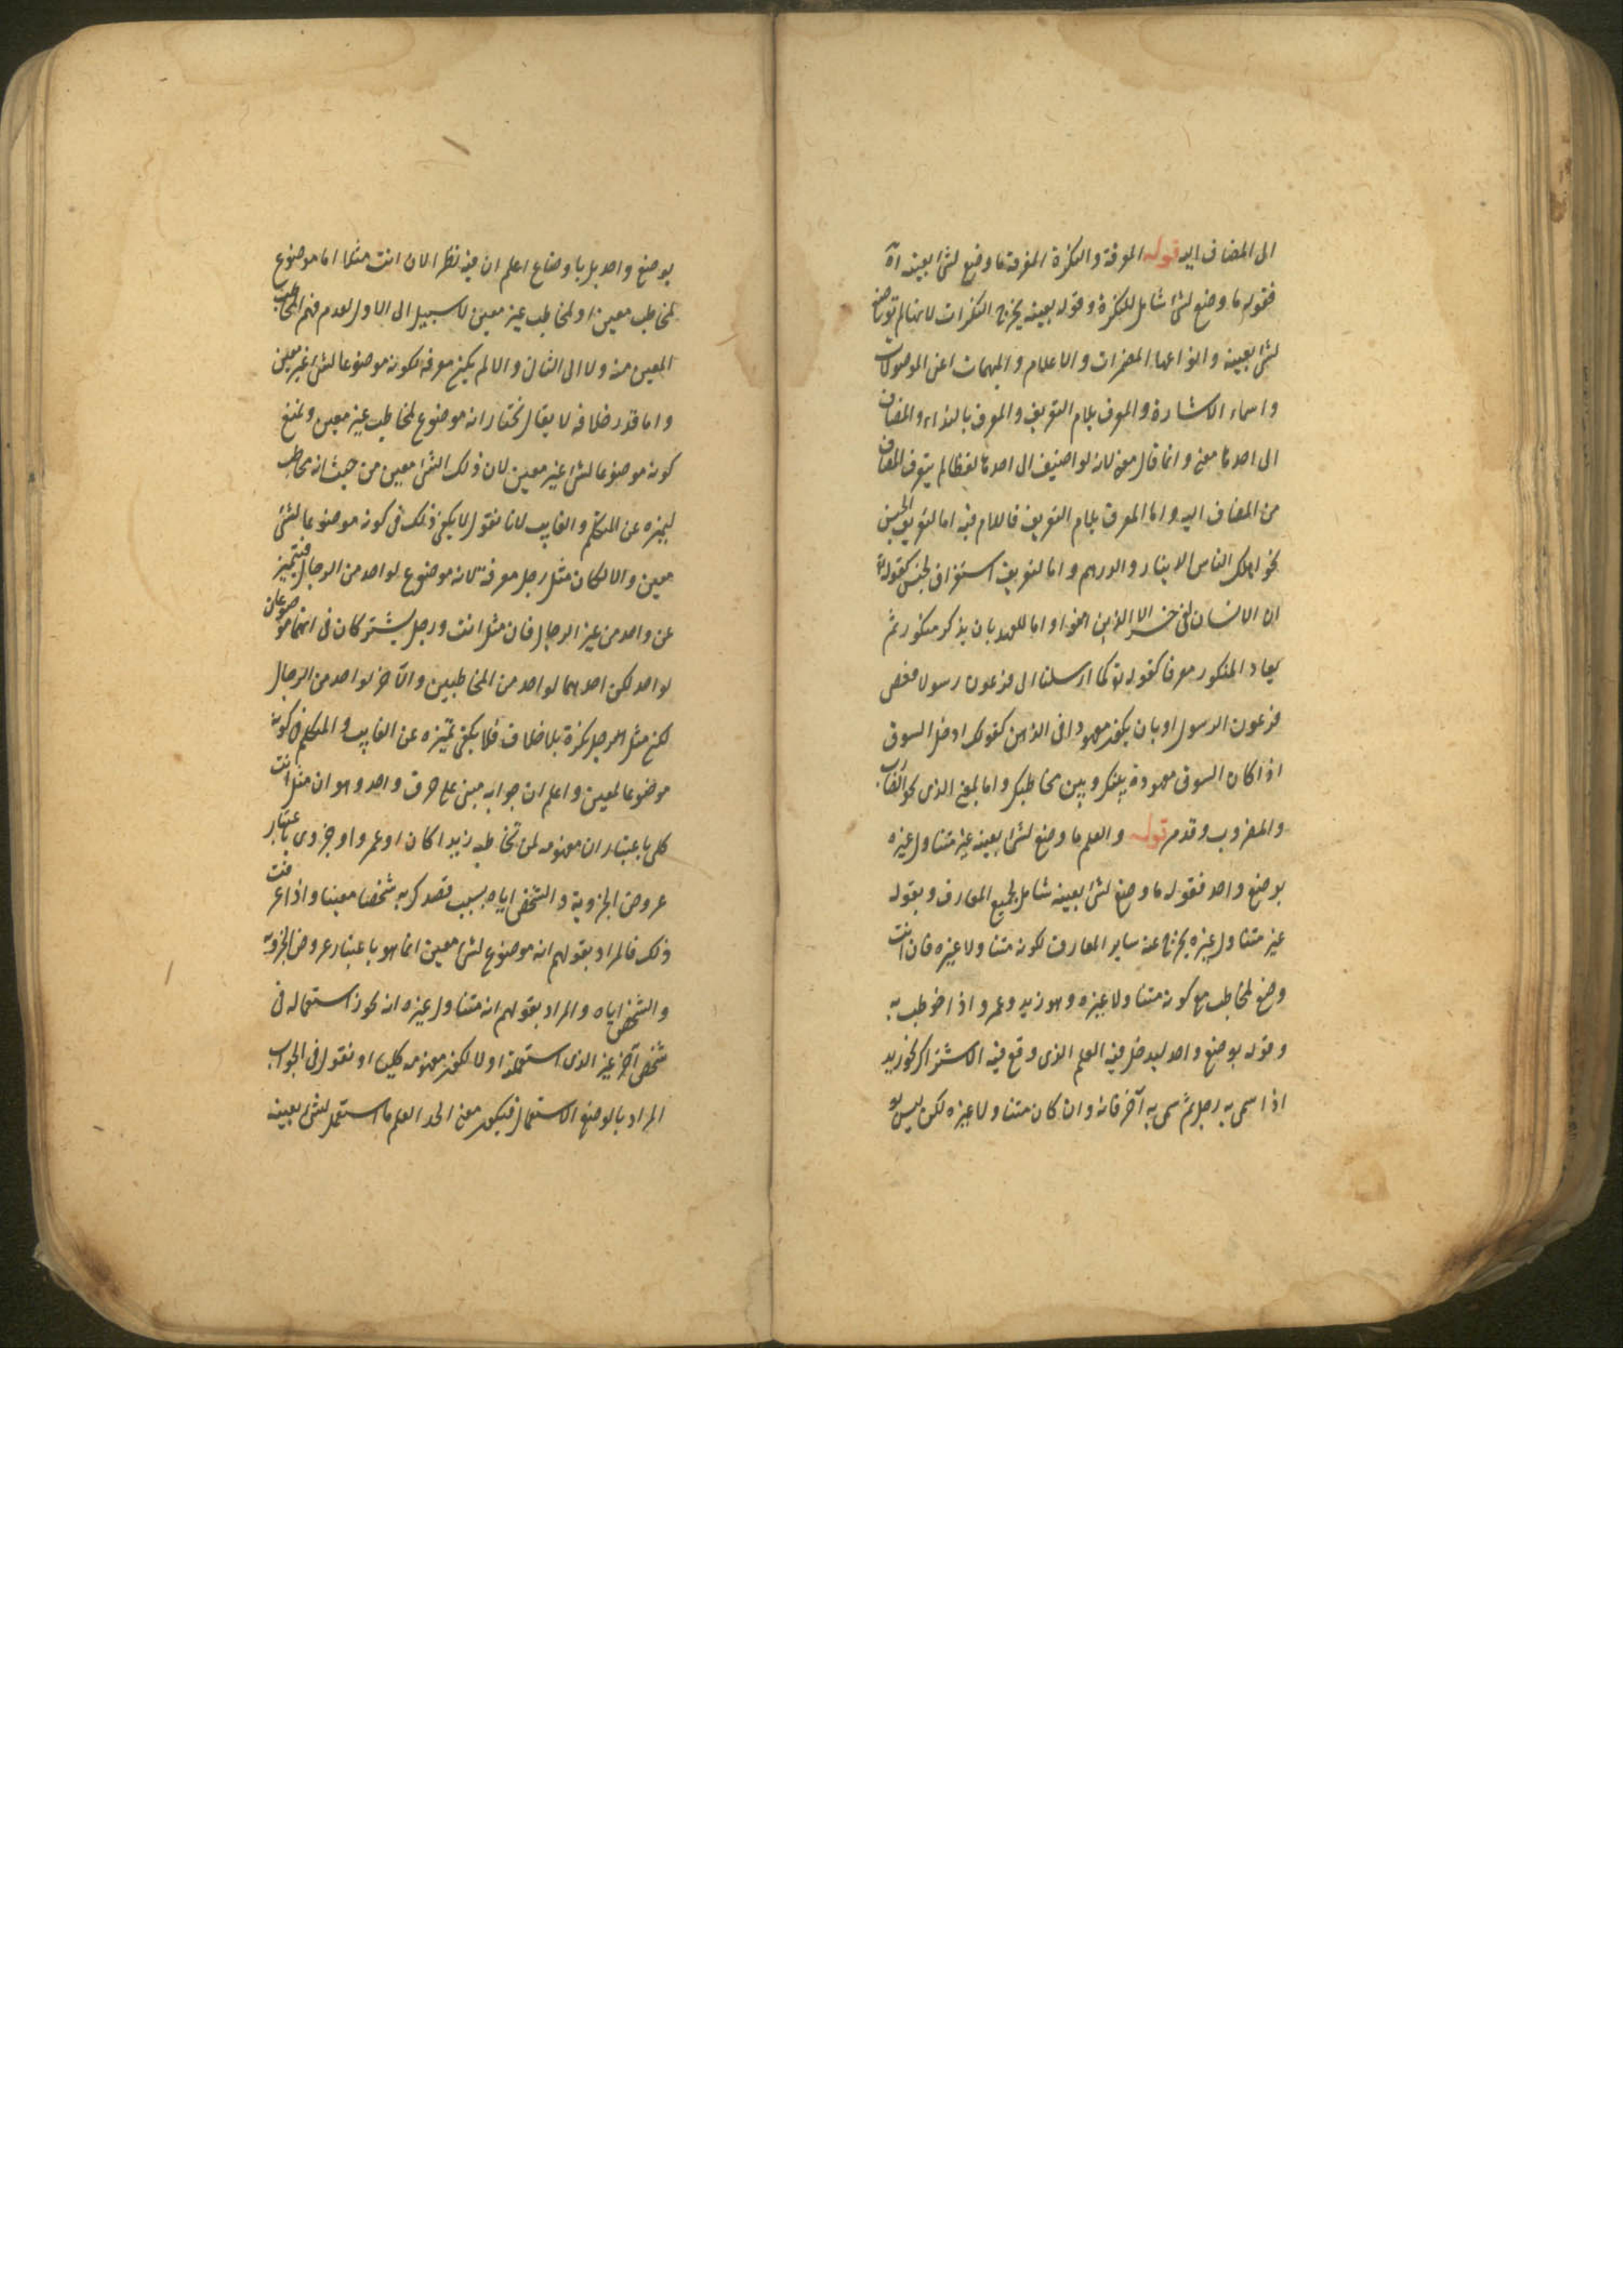 الى المضاف اليه قوله المعرفة والنكرة المعرفة ما وضع لشئ بعينه اه
فقوله ما وضع لشئ شامل للنكرة وقوله بعينه يخرج النكرات لانها لم توضع
لشئ بعينه وانواعها المضمرات والاعلام والمبهمات اعنى الموصولات
واسماء الاشارة والمعرف بلام التعريف والمعرف بالنداء والمضاف
الى احدها معنى وانما قال معنى لانه لو اضيف الى احدها لفظا لم يتعرف المضاف
من المضاف اليه واما المعرف بلام التعريف فاللام فيه اما لتعريف الجنس
نحو اهلك الناس الدينار والدرهم واما لتعريف استغراق الجنس كقوله تع
ان الانسان لفى خسر الا الذين امنوا واما للعهد بان يذكر منكور ثم
يعاد المنكور معرفا كقوله تع كما ارسلنا الى فرعون رسولا فعصى
فرعون الرسول او بان يكون معهودا فى الذهن كقولك ادخل السوق
اذا كان السوق معهودة بينك وبين مخاطبك واما بمعنى الذى نحو الضارب
والمضروب وقد مر قوله والعلم ما وضع لشئ بعينه غير متناول غيره
بوضع واحد فقوله ما وضع لشئ بعينه شامل لجميع المعارف وبقوله
غير متناول غيره يخرج عنه ساير المعارف لكونه متناولا غيره فان انت
وضع لمخاطب مع كونه متناولا غيره وهو زيد وعمرو اذا خوطب به
وقوله بوضع واحد ليدخل فيه العلم الذى وقع فيه الاشتراك نحو زيد
اذا سمى به رجل ثم سمى به آخر فانه وان كان متناولا غيره لكن ليس
بوضع واحد بل باوضاع اعلم ان فيه نظرا لان انت مثلا اما موضوع
لمخاطب معين او لمخاطب غير معين لا سبيل الى الاول لعدم فهم المخاطب
المعين منه ولا الى الثانى والا لم يكن معرفة لكونه موضوعا لشئ غير معين
واما قدر خلافه لا يقال نختار انه موضوع لمخاطب غير معين ونمنع
كونه موضوعا لشئ غير معين لان ذلك الشئ معين من حيث انه مخاطب
لتميزه عن المتكلم والغايب لانا نقول لا يكفى ذلك فى كونه موضوعا لشئ
معين والا لكان مثل رجل معرفة لانه موضوع لواحد من الرجال فيتميز
عن واحد من غير الرجال فان مثل انت ورجل يشتركان فى انهما موضوعان
لواحد لكن احدهما لواحد من المخاطبين والآخر لواحد من الرجال
لكن مثل الرجل نكرة بلا خلاف فلا يكفى تميزه عن الغايب والمتكلم فى كونه
موضوعا لمعين واعلم ان جوابه مبنى على حرف واحد وهو ان مثل انت
كلى باعتبار ان مفهومه لمن تخاطبه زيدا كان او عمروا وجزوى باعتبار
عروض الجزوية والتشخص اياه بسبب قصدك به شخصا معينا واذا عرفت
ذلك فالمراد بقولهم انه موضوع لشئ معين انما هو باعتبار عروض الجزوية
والتشخص اياه والمراد بقولهم انه متناول غيره انه يجوز استعماله فى
شخص آخر غير الذى استعملته اولا لكون مفهومه كليا او نقول فى الجواب
المراد بالوضع الاستعمال فيكون معنى الحد العلم ما استعمل لشئ بعينه